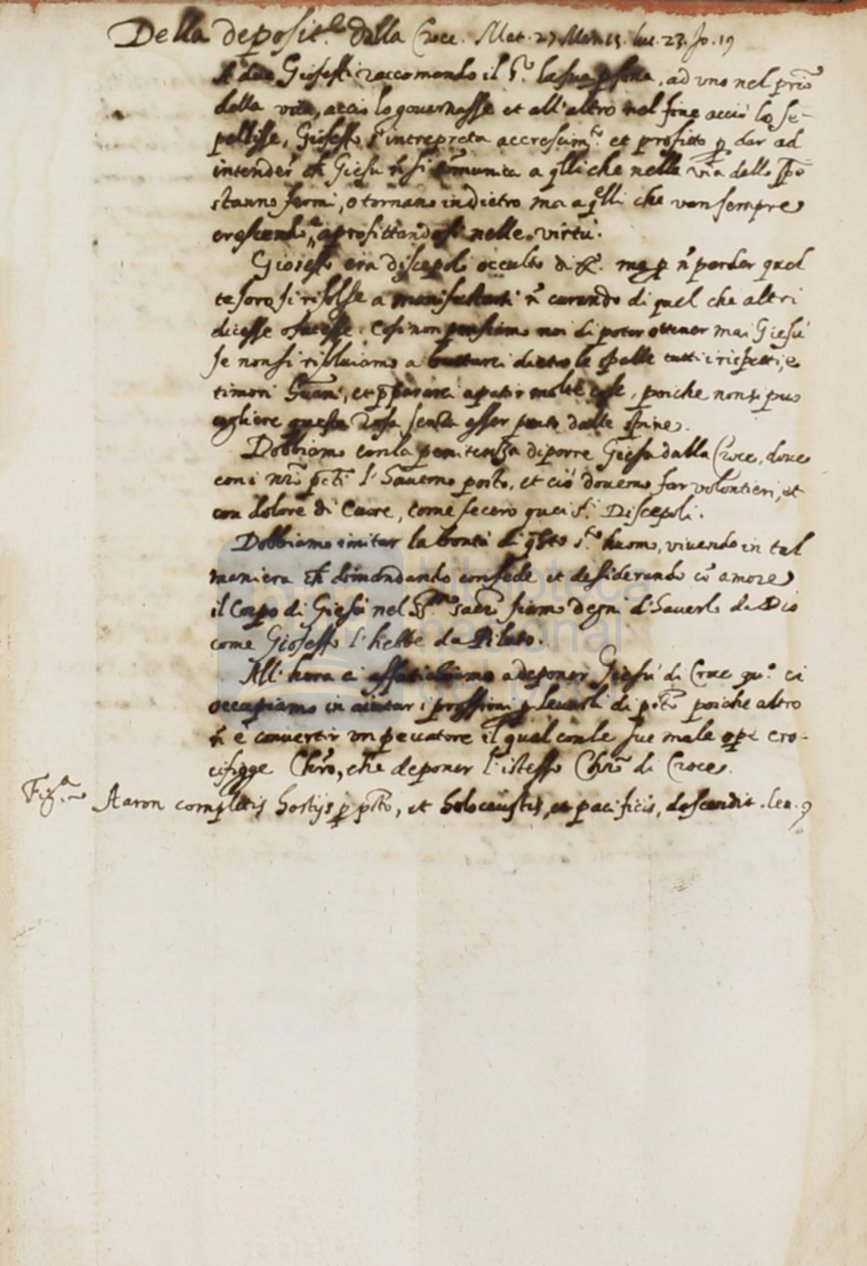 Della deposit.e dalla Croce. Mat. 27. Mar. 15. luc. 23. Jo. 19
A due Gioseffi raccomandò il S.r la sua psona, ad uno nel prio
della vita, acciò lo governasse et all'altro nel fine acciò lo se-
pellisse, Gioseffo s'intrepreta accrescim.to et profitto p dar ad
intender ch Giesù ñ si cõmunica a qlli che nella via dello
stanno fermi, o tornano indietro ma a qlli che van sempre
crescendo, aprofittandosi nelle virtù.
Gioseffo era discepolo occulto di X. ma p ñ perder quel
tesoro si risolse a manifestarsi ñ curando di quel che altri
dicesse o facesse. Così non pensiamo noi di poter ottener mai Giesù
se non si risolviamo a buttarci dietro le spalle tutti i rispetti, e
timori humani, et pparare a patir molte cose, poiche non si puo
cogliere questa Rosa senza esser punti dalle spine.
Dobbiamo con la penitenza diporre Giesù dalla Croce, dove
con i nri pcti l'havemo posto, et ciò dovemo far volontieri, et
con dolore di Cuore, come fecero quei s.ti Discepoli.
Dobbiamo imitar la bontà di qsto s.to huomo, vivendo in tal
maniera ch domandando con fede et desiderando cõ amore
il Corpo di Giesù nel SS.mo sacr.o siamo degni d'haverlo da Dio
come Gioseffo l'hebbe da Pilato.
All'hora ci affatichiamo a deponer Giesù di Croce qn.o ci
occupiamo in aiutar i prossimi p levarli di pcto poiche altro
ñ è convertir un peccatore il qual con le sue male ope cro-
cifigge Chro, che deponer l'istesso Chro di Croce.
Fig.a Aaron completis hostijs p pcto, et holocaustis, et pacificis, descendit. lev. 9